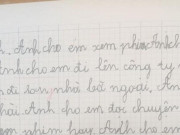 h. Anh cho em xem phim Anh ch
Anh cho em đi lên công ty
đi lên nhà bà ngoại, An
hái. Anh cho em đọc chuyện
em phim hay, Anh cho em